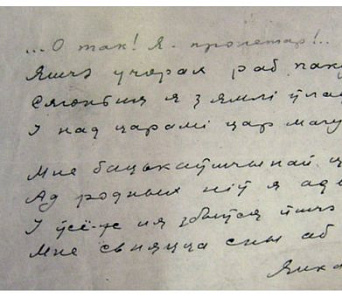 ... О так! Я - пролетар!..
Яшчэ учора раб паку
Сягоньня я з ямлі ўлад
І над царамі цар магу
Мне бацькаўшчынай ц
Ад родных ніў я ад
І ўсё-ж ня збыўся йшчэ
Мне сьняцца сны аб
Янка